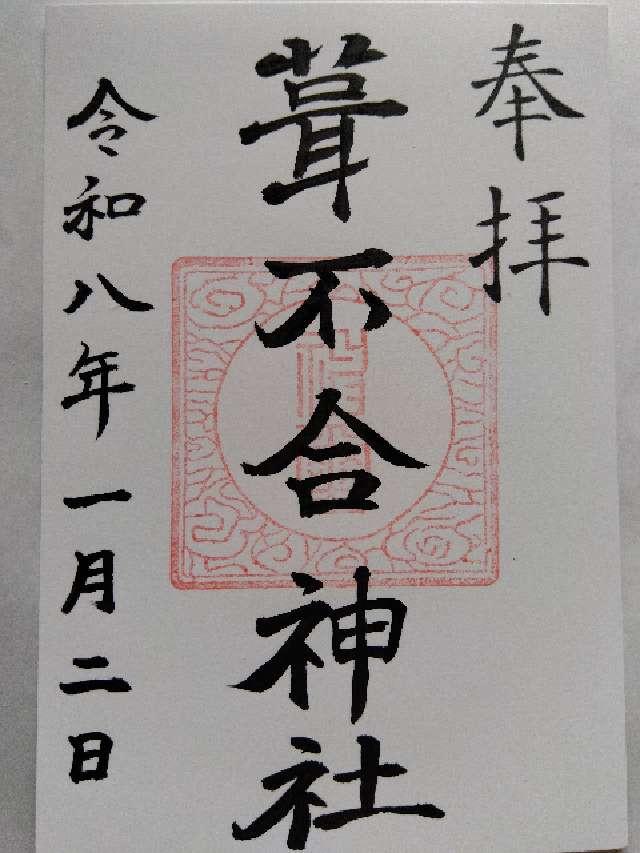 奉拝
葺不合神社
令和八年一月二日